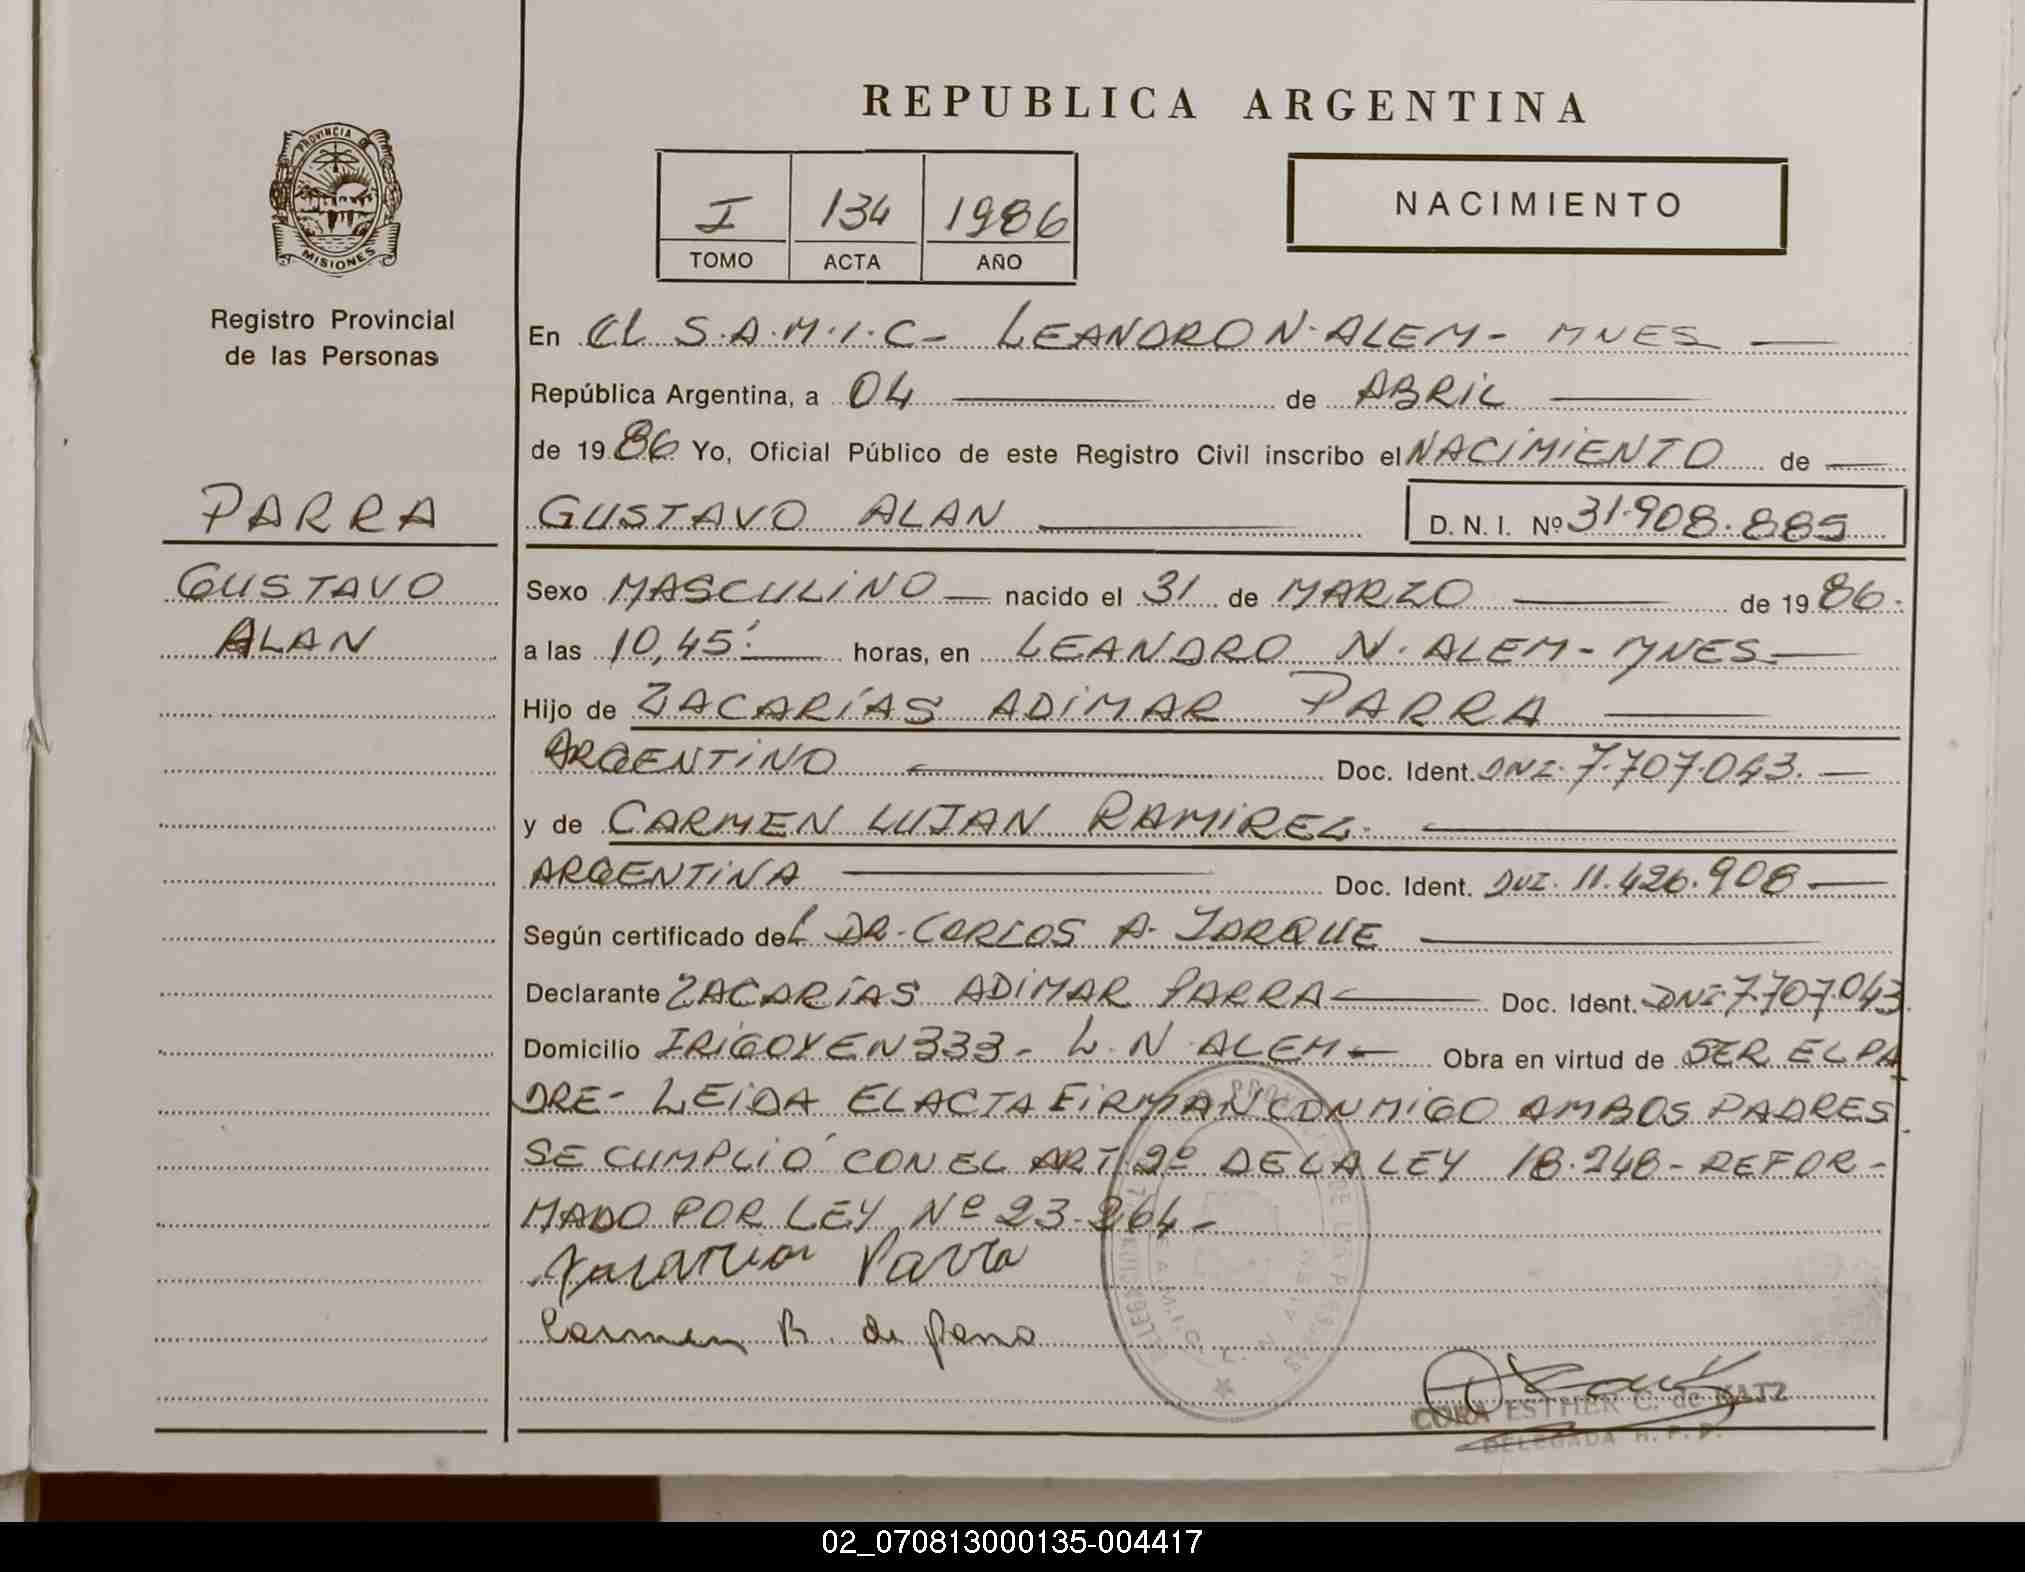 REPUBLICA ARGENTINA
PROVINCIA DE
MISIONES
Registro Provincial
de las Personas
I 134 1986
TOMO ACTA AÑO
NACIMIENTO
En EL S.A.M.I.C- LEANDRO N. ALEM- MNES
República Argentina, a 04 de ABRIL
de 1986 Yo, Oficial Público de este Registro Civil inscribo el NACIMIENTO de
PARRA
GUSTAVO ALAN D. N. I. Nº 31.908.885
GUSTAVO
ALAN
Sexo MASCULINO nacido el 31 de MARZO de 1986.
a las 10,45' horas, en LEANDRO N. ALEM- MNES
Hijo de ZACARÍAS ADIMAR PARRA
ARGENTINO Doc. Ident. DNI. 7.707.043.
y de CARMEN LUJAN RAMIREZ.
ARGENTINA Doc. Ident. DNI. 11.426.908
Según certificado del DR. CARLOS A. JARQUE
Declarante ZACARÍAS ADIMAR PARRA Doc. Ident. DNI 7.707.043
Domicilio IRIGOYEN 333- L. N. ALEM- Obra en virtud de SER EL PA
DRE- LEIDA EL ACTA FIRMAN CONMIGO AMBOS PADRES
SE CUMPLIÓ CON EL ART. 2º DE LA LEY 18.248- REFOR-
MADO POR LEY Nº 23.264-
Zacarias Parra
Carmen R. de Parra
CORA ESTHER C. de KATZ
DELEGADA R. P. P.
02_070813000135-004417